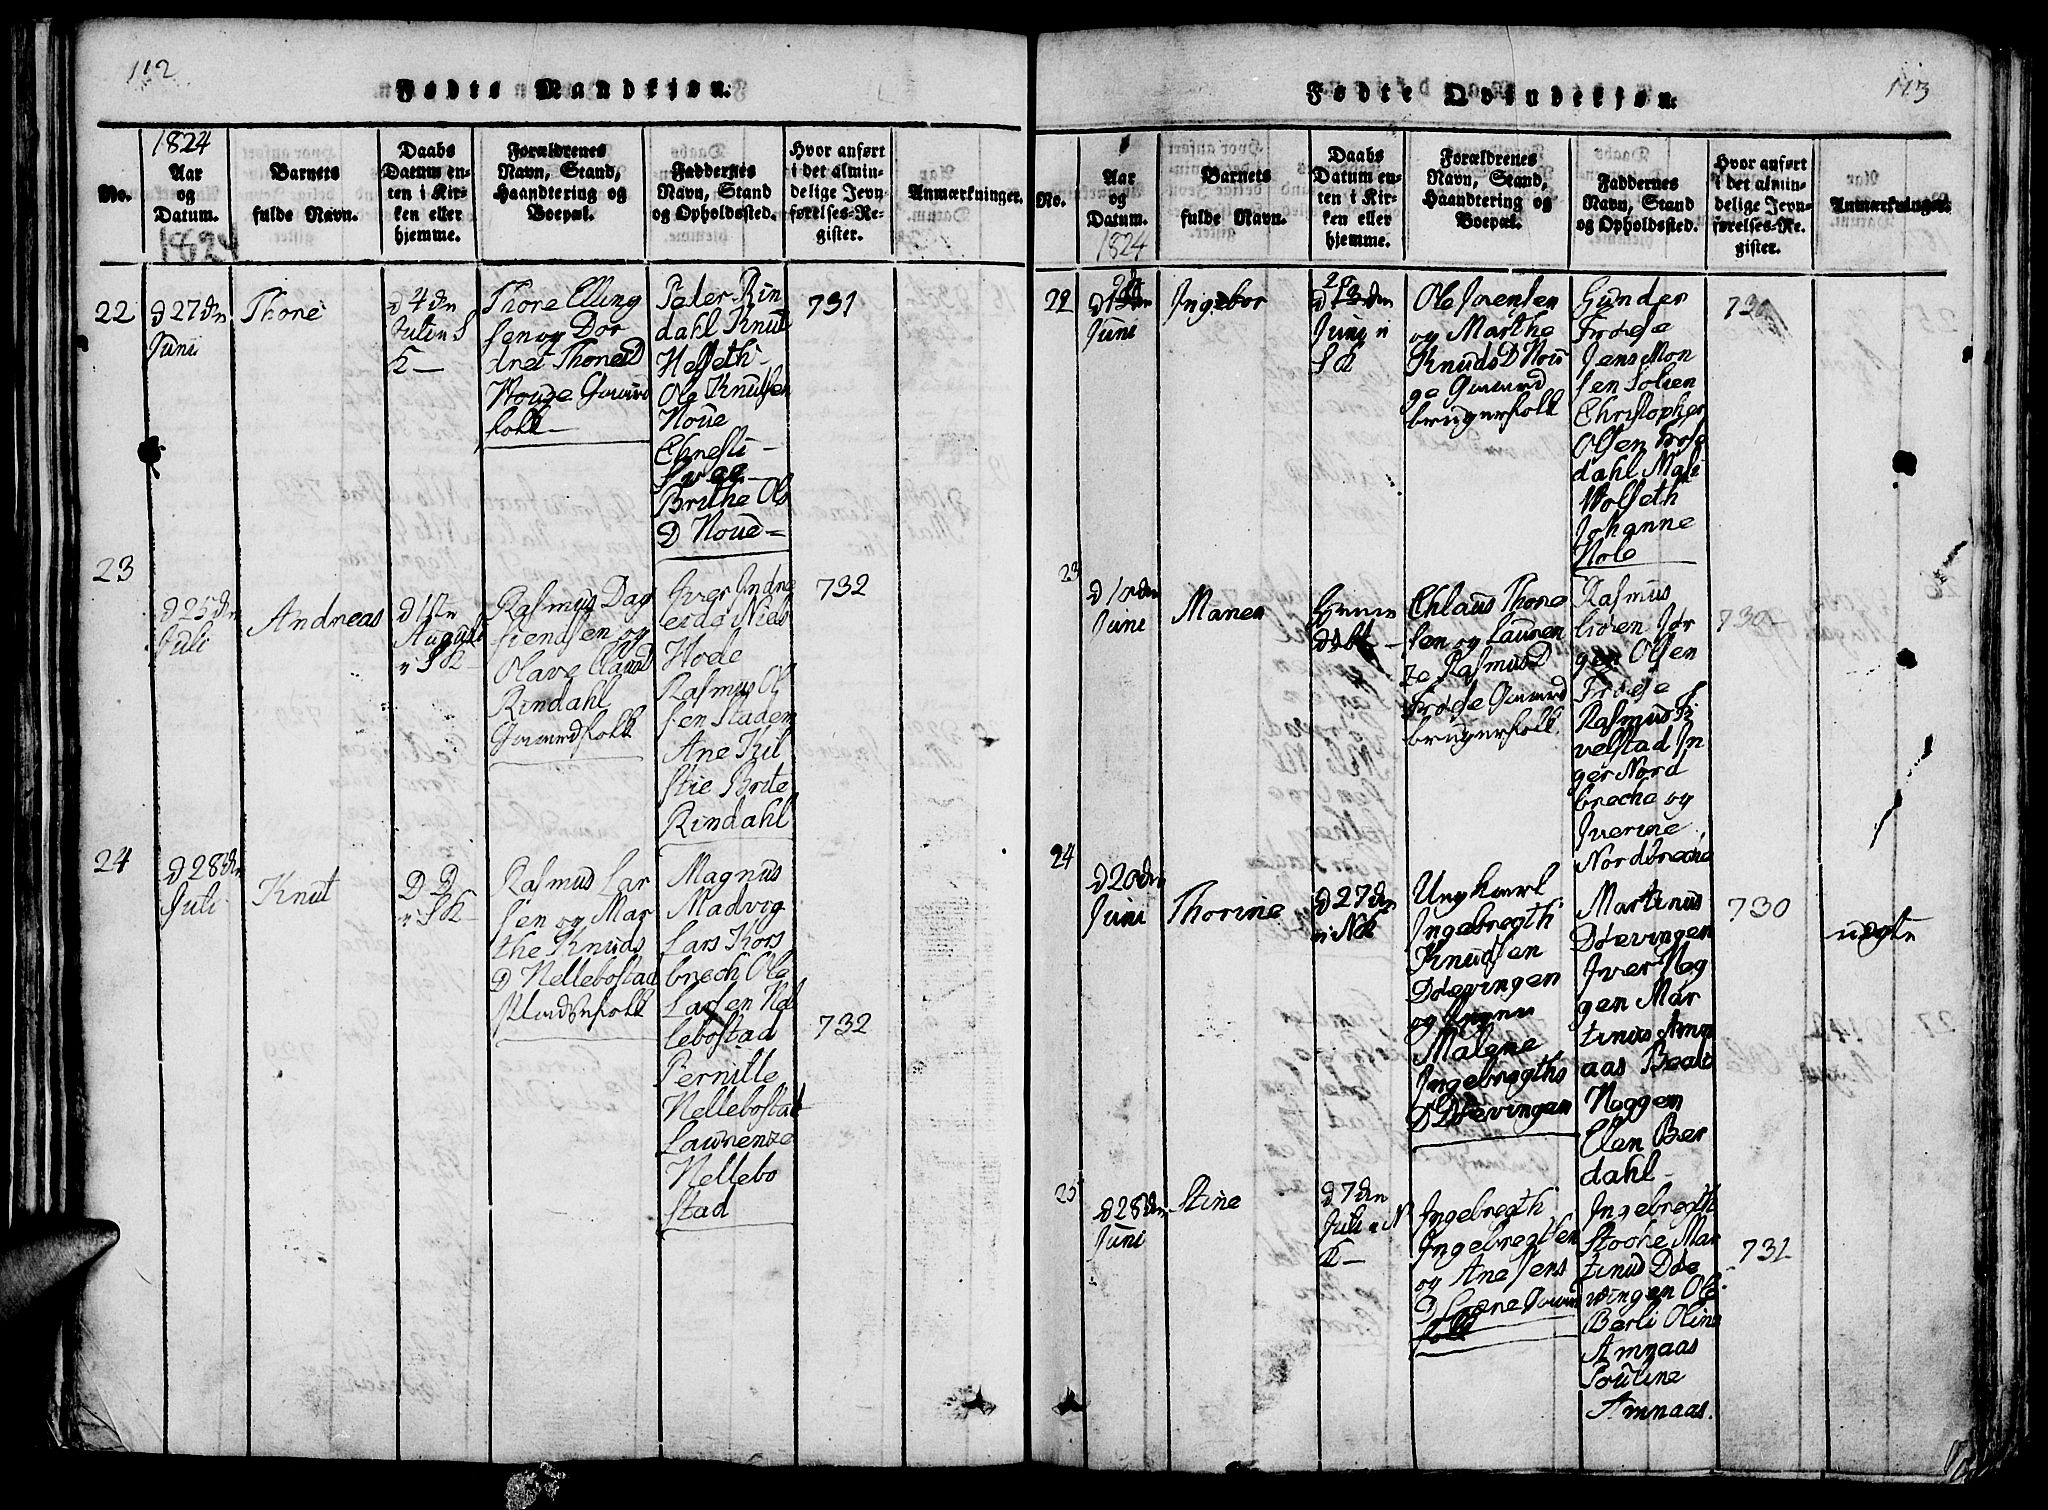 112
Fødte Mandkjøn.
No.
1824
Aar
og
Datum.
1824
Barnets
fulde Navn.
Daabs
Datum en-
ten i Kir-
ken eller
hjemme.
Forældrenes
Navn, Stand,
Haandtering og
Boepæl.
Faddernes
Navn, Stand
og Opholdssted.
Hvor anført
i det almin-
delige Jevn-
førelses-Re-
gister.
Anmærkninger.
22
d 27den
Juni
Thore
d 4den
Juli i S
K—
Thore Elling
sen og Dor
dret Thores D
Houge Gaard
folk
Peder Rin
dahl Knut
Helseth
Ole Knutsen
Houe
Chresti
Svee
Brithe Ols
D Houe
731
23
d 25den
Juli
Andreas
d 1ste
August
i SK
Rasmus Dag
fiendsen og
Olave Olands
Rindahl
Gaardfolk
Iver Indre
eide Niels
Hode
Rasmus Ol
sen Staden
Ane Kil
stie Brite
Rindahl
732
24
d 28den
Juli
Knut
D D
i SK
Rasmus Lar
sen og Mar
the Knuds
D Nellebostad
Pladsfolk
Magnus
Madvig
Lars Kors
brech Ole
Larsen Nel
lebostad
Pernille
Nellebostad
Laurenze
Nellebo
stad
732
113
Fødte Qvindekjøn.
No.
Aar
og
Datum.
1824
Barnets
fulde Navn.
Daabs
Datum en-
ten i Kir-
ken eller
hjemme.
Forældrenes
Navn, Stand,
Haandtering og
Boepæl.
Faddernes
Navn, Stand
og Opholdssted.
Hvor anført
i det almin-
delige Jevn-
førelses-Re-
gister.
Anmærkninger.
22
Juni
Ingebor
Juni i
SK
Ole Jorensen
og Marthe
Knuds D Hou
ge Gaard
brugerfolk
Gunder
Frøise
Jens Mon
sen Solien
Christopher
Olsen Frose
dahl Mali
Wolseth
Johanne
Hole
730
23
d 10den
Juni
Maren
Hjemme
døbt
Chlaus Thore
sen og Lauren
ze Rasmus D
Frøise Gaard
brugerfolk
Rasmus
lioren Jør
gen Olsen
Frøise
Rasmus Fi
velstad In
ger Nord
breche og
Iverine
Nordbreche
730
24
d 20den
Juni
Thorine
d 27den
i NK
Ungkarl
Ingebregth
Knudsen
Døevingen
og Pigen
Malene
Ingebregths
D Døevingen
Martinus
Døevingen
Iver Hag
gen Mar
tinus Amn
aas Beate
Haggen
Elen Ber
dahl
730
uægte
25
d 28den
Juni
Stine
d 7den
Juli i N
K—
Ingebregth
Ingebregtsen
og Ane Jens
D Gaard
folk
Ingebregth
Stoohe Mar
tinus Døe
vingen Ole
Berli Oline
Amnaas
Poutine
Amnaas.
731